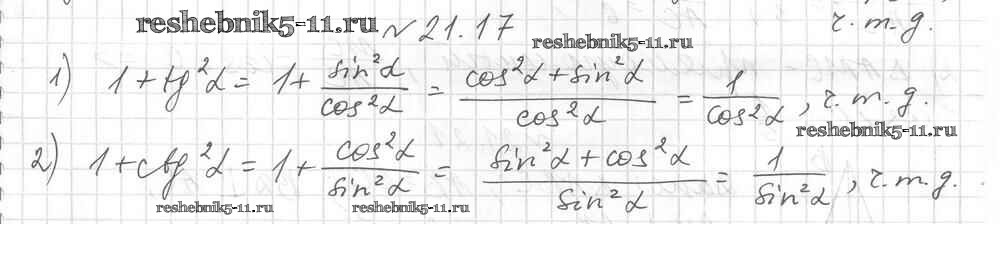 ч. т. д.
reshebnik5-11.ru № 21.17
reshebnik5-11.ru
1) 1 + tg²α = 1 + sin²α/cos²α = (cos²α + sin²α)/cos²α = 1/cos²α, ч. т. д.
reshebnik5-11.ru
2) 1 + ctg²α = 1 + cos²α/sin²α = (sin²α + cos²α)/sin²α = 1/sin²α, ч. т. д.
reshebnik5-11.ru reshebnik5-11.ru